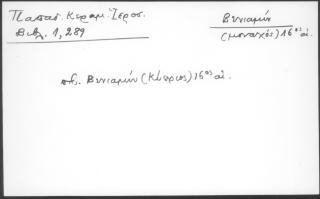 Παπαδ. Κεραμ. Ἱερος.
Βιβλ. 1, 289
Βενιαμίν
(μοναχός) 16ος αἰ.
πβ. Βενιαμίν (Κύπριος) 16ος αἰ.